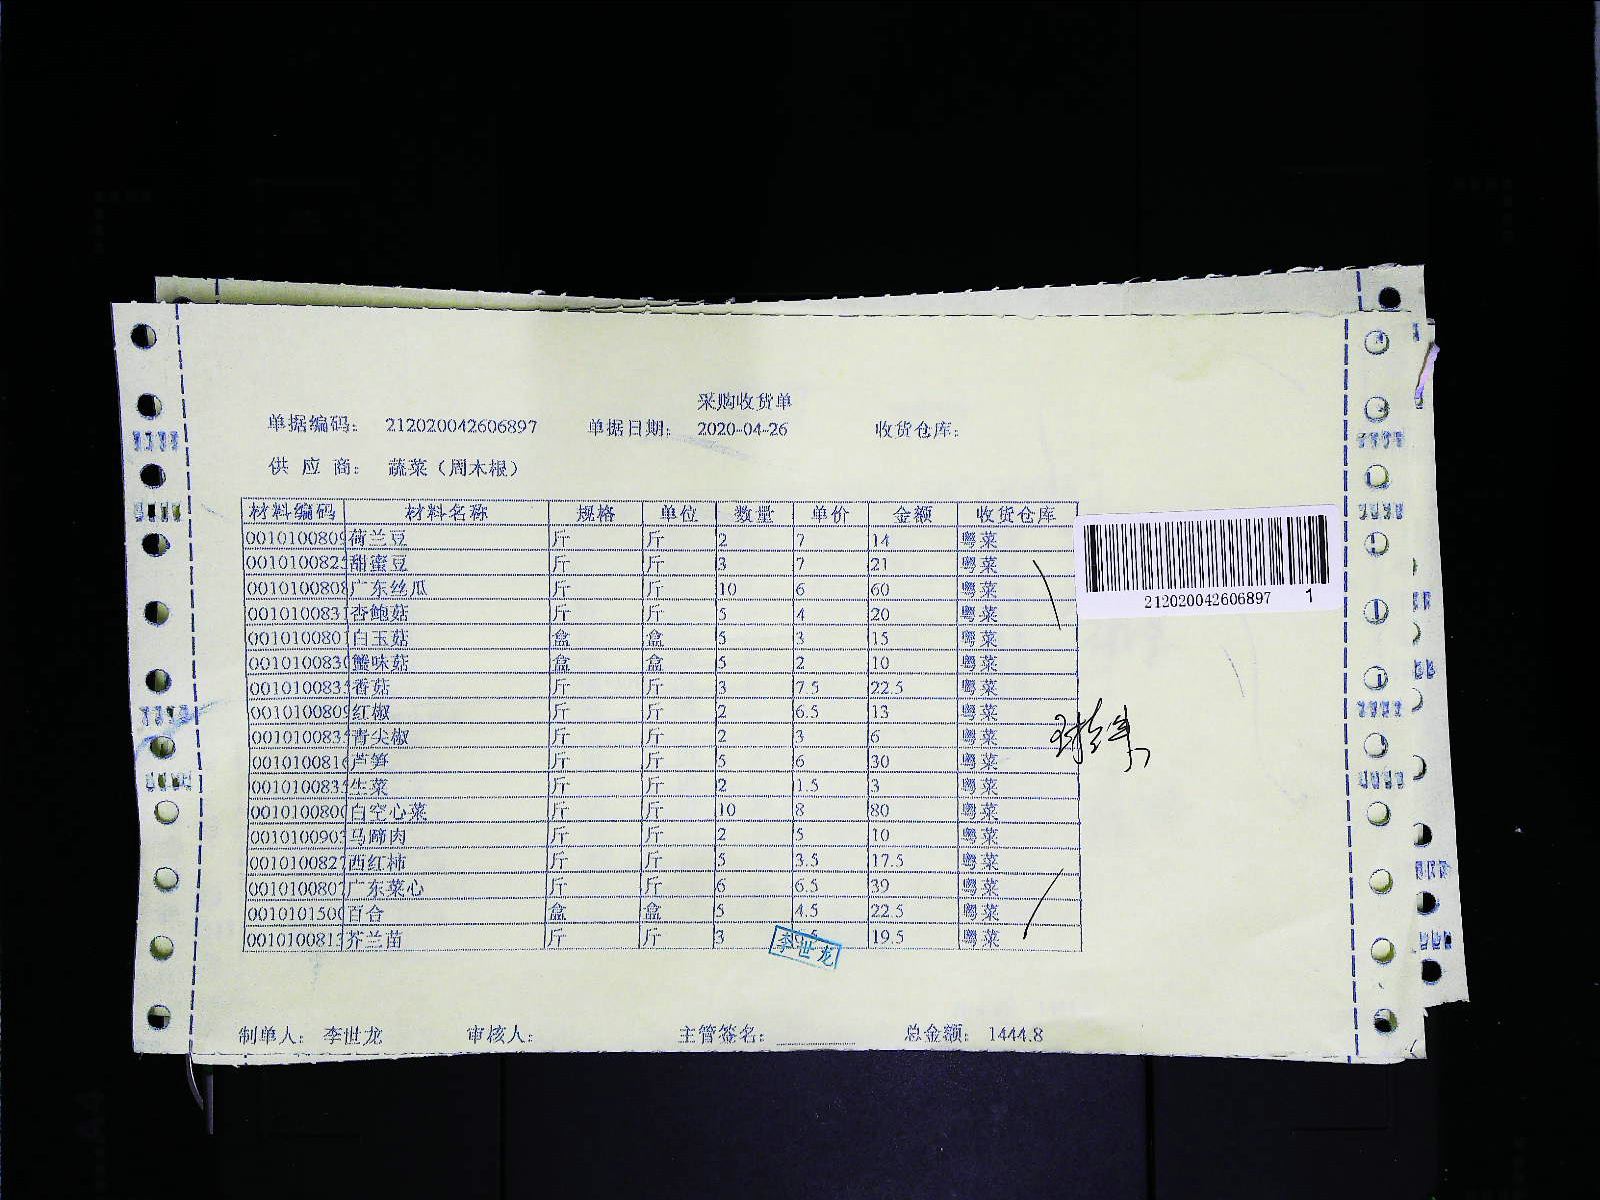 采购收货单
单据编码： 212020042606897 单据日期： 2020-04-26 收货仓库：
供 应 商： 蔬菜（周木根）
材料编码 材料名称 规格 单位 数量 单价 金额 收货仓库
0010100809 荷兰豆 斤 斤 2 7 14 粤菜
001010082 甜蜜豆 斤 斤 3 7 21 粤菜
0010100808 广东丝瓜 斤 斤 10 6 60 粤菜
001010083 杏鲍菇 斤 斤 5 4 20 粤菜
001010080 白玉菇 盒 盒 5 3 15 粤菜
001010083 蟹味菇 盒 盒 5 2 10 粤菜
001010083 香菇 斤 斤 3 7.5 22.5 粤菜
0010100809 红椒 斤 斤 2 6.5 13 粤菜
001010083 青尖椒 斤 斤 2 3 6 粤菜
001010081 芦笋 斤 斤 5 6 30 粤菜
001010083 生菜 斤 斤 2 1.5 3 粤菜
001010080 白空心菜 斤 斤 10 8 80 粤菜
001010090 马蹄肉 斤 斤 2 5 10 粤菜
001010082 西红柿 斤 斤 5 3.5 17.5 粤菜
001010080 广东菜心 斤 斤 6 6.5 39 粤菜
001010150 百合 盒 盒 5 4.5 22.5 粤菜
001010081 芥兰苗 斤 斤 3 19.5 粤菜
李世龙
212020042606897 1
制单人： 李世龙 审核人： 主管签名： 总金额： 1444.8